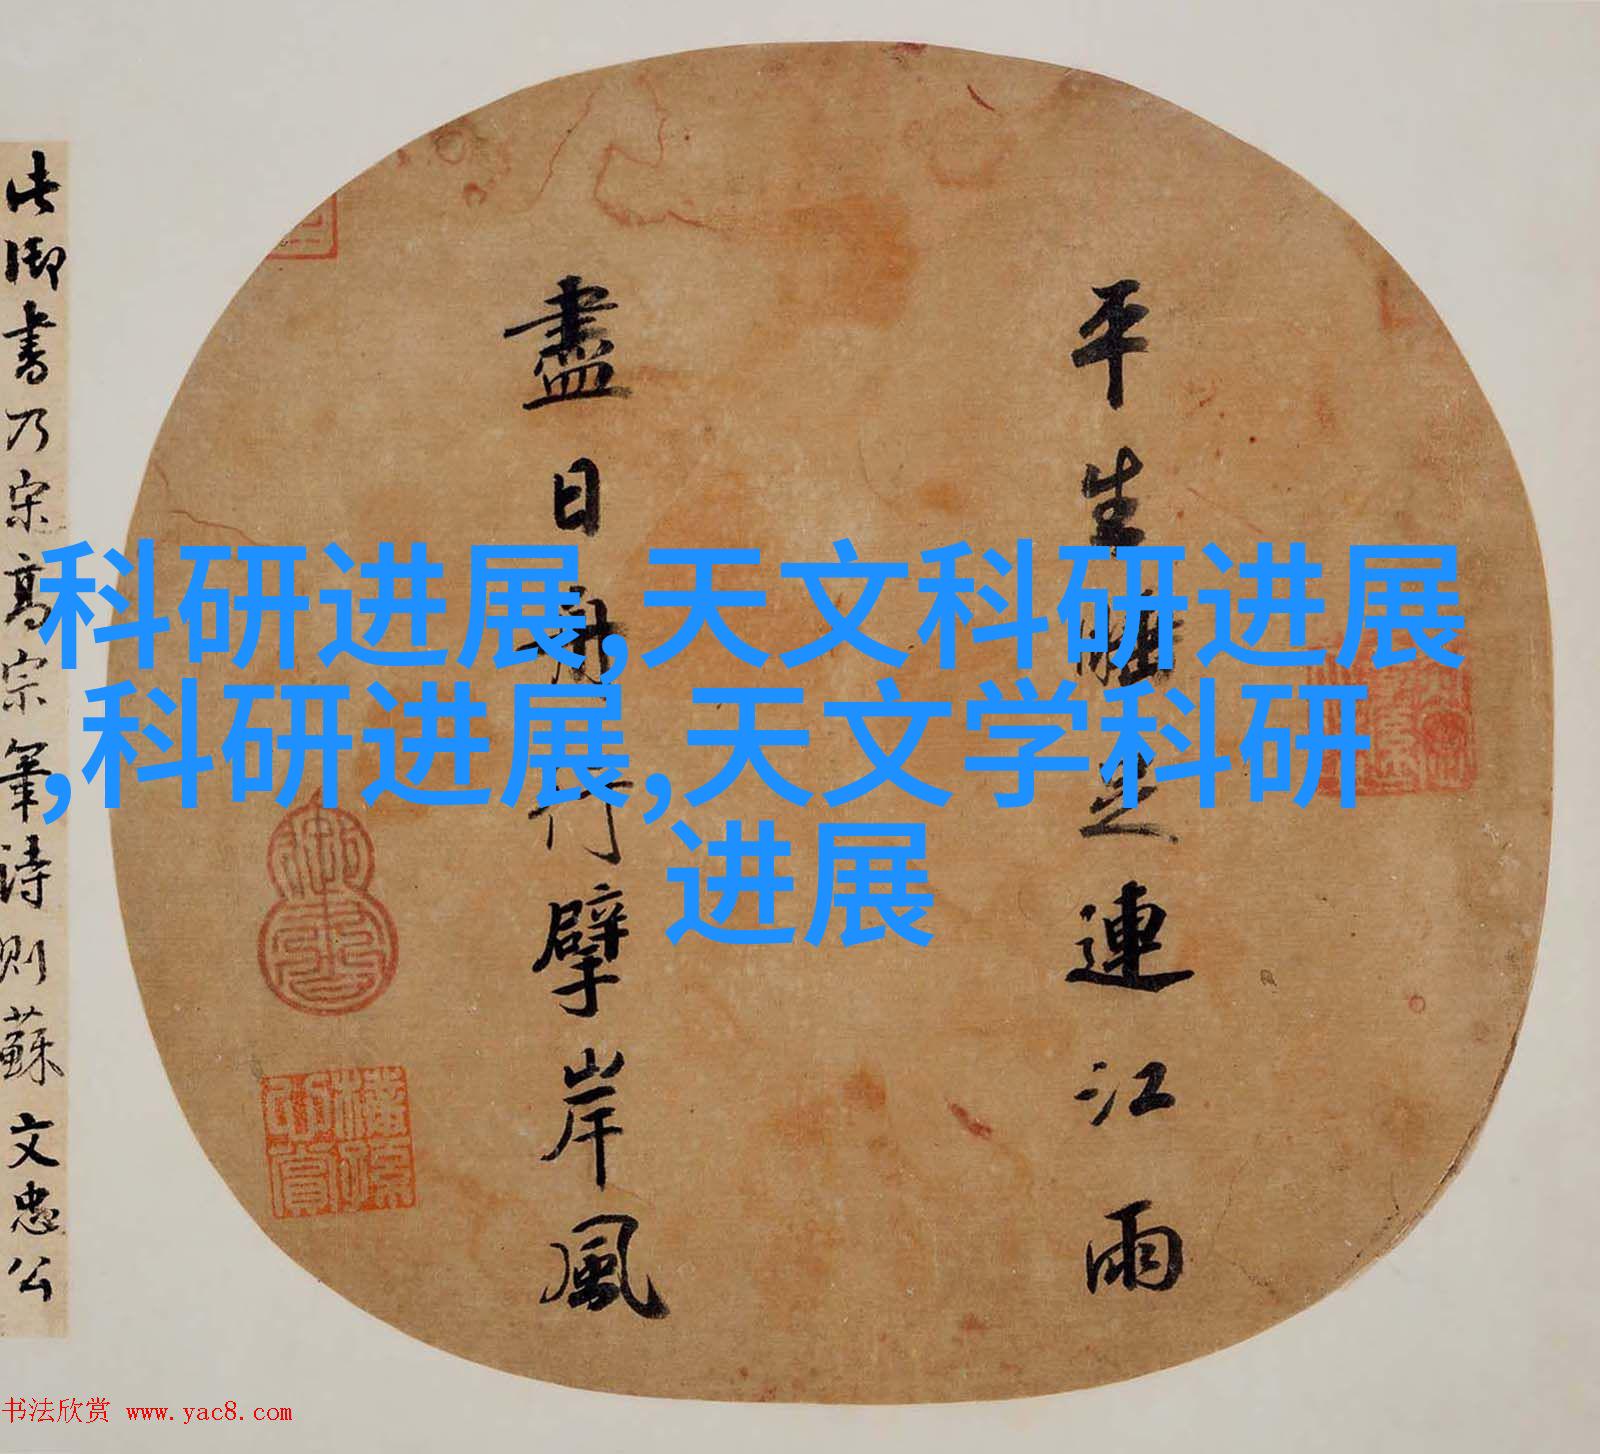 科研进展,天文科研进展
,科研进展,天文学科研
进展
平生睡足連江雨
盡日舟行擘岸風
此御書乃宋高宗筆詩則蘇文忠公
书法欣赏 www.yac8.com